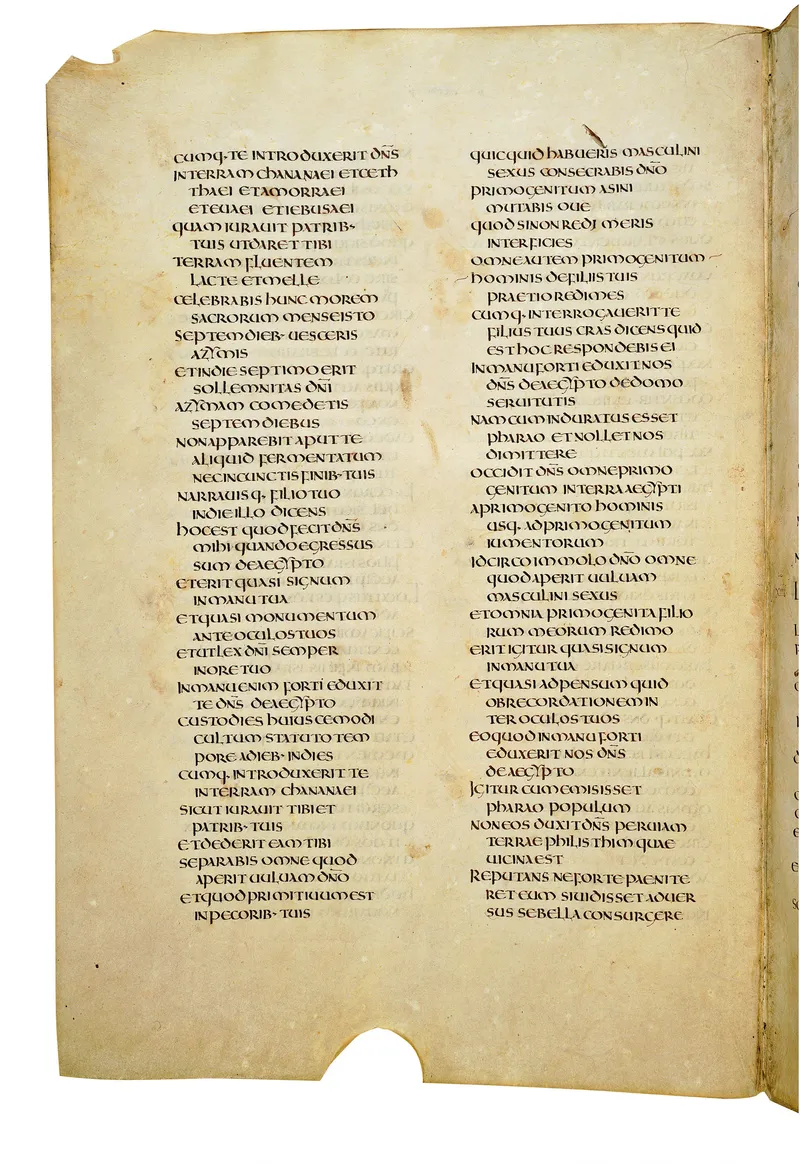 CUMQ· TE INTRODUXERIT DN̅S
INTERRAM CHANANAEI ETCETH
THAEI ETAMORRAEI
ETEUAEI ETIEBUSAEI
QUAM IURAUIT PATRIB·
TUIS UTDARET TIBI
TERRAM FLUENTEM
LACTE ETMELLE
CELEBRABIS HUNC MOREM
SACRORUM MENSEISTO
SEPTEM DIEB· UESCERIS
AZYMIS
ETINDIE SEPTIMO ERIT
SOLLEMNITAS DN̅I
AZYMAM COMEDETIS
SEPTEM DIEBUS
NONAPPAREBIT APUT TE
ALIQUID FERMENTATUM
NECINCUNCTIS FINIB· TUIS
NARRAUISQ· FILIO TUO
INDIE ILLO DICENS
HOCEST QUOD FECIT DN̅S
MIHI QUANDO EGRESSUS
SUM DEAEGYPTO
ETERIT QUASI SIGNUM
INMANU TUA
ETQUASI MONUMENTUM
ANTE OCULOS TUOS
ETUT LEX DN̅I SEMPER
INORE TUO
INMANU ENIM FORTI EDUXIT
TE DN̅S DEAEGYPTO
CUSTODIES HUIUSCEMODI
CULTUM STATUTO TEM
PORE ADIEB· INDIES
CUMQ· INTRODUXERIT TE
INTERRAM CHANANAEI
SICUT IURAUIT TIBI ET
PATRIB· TUIS
ETDEDERIT EAM TIBI
SEPARABIS OMNE QUOD
APERIT UULUAM DN̅O
ETQUOD PRIMITIUUM EST
INPECORIB· TUIS
QUICQUID HABUERIS MASCULINI
SEXUS CONSECRABIS DN̅O
PRIMOGENITUM ASINI
MUTABIS OUE
QUOD SINON REDIMERIS
INTERFICIES
OMNE AUTEM PRIMOGENITUM
HOMINIS DEFILIIS TUIS
PRAETIO REDIMES
CUMQ· INTERROGAUERIT TE
FILIUS TUUS CRAS DICENS QUID
EST HOC RESPONDEBIS EI
INMANU FORTI EDUXIT NOS
DN̅S DEAEGYPTO DEDOMO
SERUITUTIS
NAM CUM INDURATUS ESSET
PHARAO ETNOLLET NOS
DIMITTERE
OCCIDIT DN̅S OMNE PRIMO
GENITUM INTERRA AEGYPTI
APRIMOGENITO HOMINIS
USQ· ADPRIMOGENITUM
IUMENTORUM
IDCIRCO IMMOLO DN̅O OMNE
QUOD APERIT UULUAM
MASCULINI SEXUS
ETOMNIA PRIMOGENITA FILIO
RUM MEORUM REDIMO
ERIT IGITUR QUASI SIGNUM
INMANU TUA
ETQUASI ADPENSUM QUID
OBRECORDATIONEM IN
TER OCULOS TUOS
EOQUOD INMANU FORTI
EDUXERIT NOS DN̅S
DEAEGYPTO
IGITUR CUM EMISISSET
PHARAO POPULUM
NONEOS DUXIT DN̅S PERUIAM
TERRAE PHILISTHIM QUAE
UICINA EST
REPUTANS NEFORTE PAENITE
RET EUM SIUIDISSET ADUER
SUS SEBELLA CONSURGERE